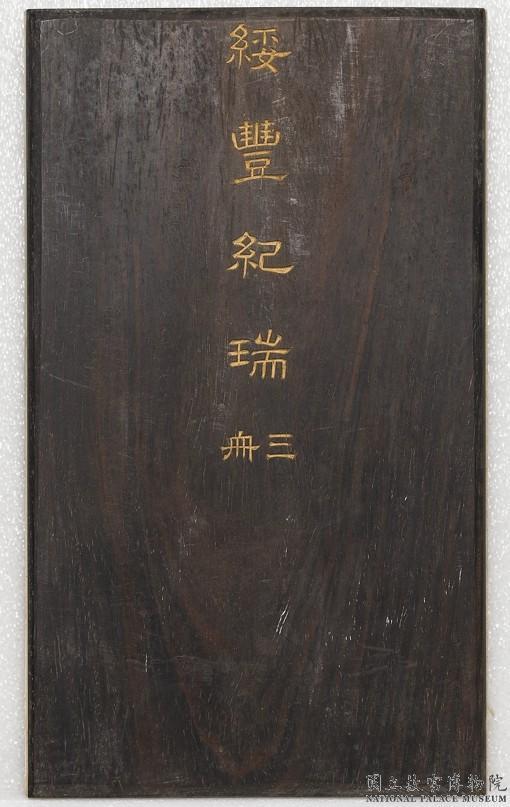 綏豐紀瑞
三冊
國立故宮博物院
NATIONAL PALACE MUSEUM